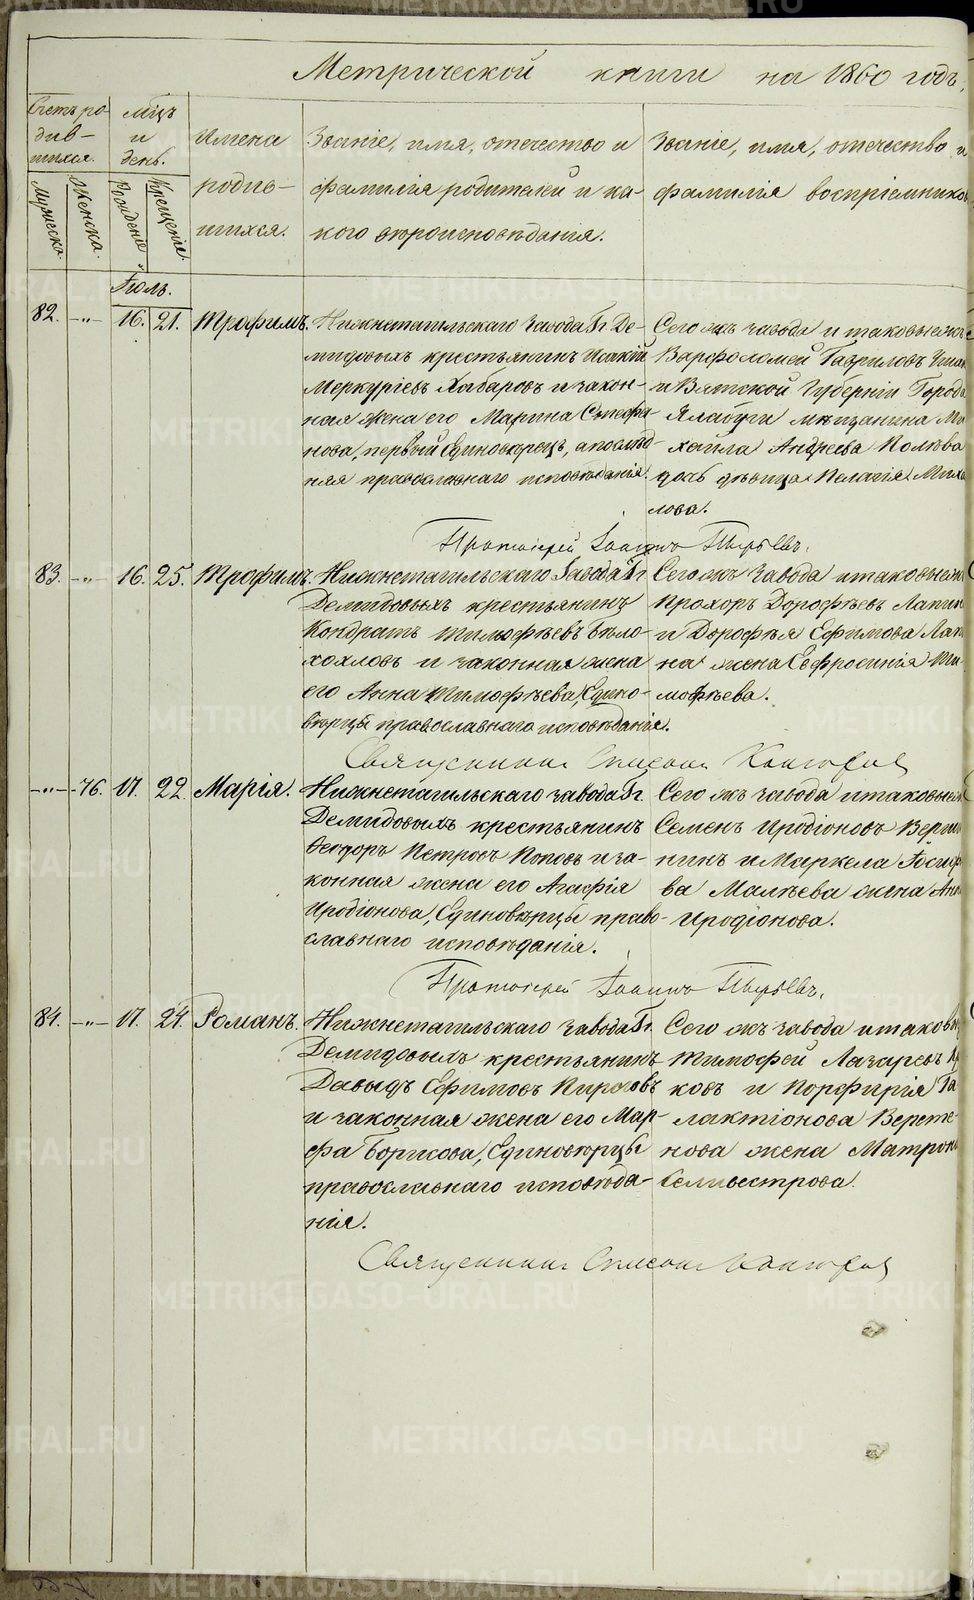 Метрической книги на 1860 годъ,
Счетъ ро-
див-
шихся.
мцъ
и
день.
Имена
родив-
шихся.
Званіе, имя, отечество и
фамилія родителей и ка-
кого вѣроисповѣданія.
Званіе, имя, отечество и
фамилія воспріемников
Мужеска.
Женска.
Рожденіе
Крещенія.
Іюль.
82. -"- 16. 21. Трофимъ. Нижнетагильскаго Завода Гг. Де-
мидовыхъ крестьянинъ Исакій
Меркуріевъ Хабаровъ и закон-
ная жена его Марина Стефа-
нова, первый Единовѣрецъ, а послѣд-
няя православнаго исповѣданія.
Сего жъ завода и таковыежъ
Варфоломей Гавриловъ
и Вятской Губерніи Города
Ялабуги мѣщанина Ми-
хаила Андреева Полѣва
дочь дѣвица Пелагія Миха
лова.
Протоіерей Іоаннъ Пырьевъ.
83. -"- 16. 25. Трофимъ. Нижнетагильскаго Завода Гг.
Демидовыхъ крестьянинъ
Кондратъ Тимофѣевъ Бѣло-
хохловъ и законная жена
его Анна Тимофѣева, Едино-
вѣрцы православнаго исповѣданія.
Сегожъ Завода итаковыеж
Прохоръ Дорофѣевъ Лапин
и Дорофѣя Ефимова Лап
на жена Евфросинія Ти-
мофѣева.
Священникъ Симеонъ
-"- 76. 17. 22. Марія. Нижнетагильскаго завода Гг.
Демидовыхъ крестьянинъ
Ѳеодоръ Петровъ Поповъ и за-
конная жена его Агафія
Иродіонова, Единовѣрцы право-
славнаго исповѣданія.
Сего жъ завода итаковыеж
Семенъ Иродіоновъ Верши
нинъ и Маркела Іосиф
ва Малѣева жена Анн
Иродіонова.
Протоіерей Іоаннъ Пырьевъ.
84. -"- 17. 24. Романъ. Нижнетагильскаго завода Гг.
Демидовыхъ крестьянинъ
Давыдъ Ефимовъ Пироговъ
и законная жена его Мар-
фа Борисова, Единовѣрцы
православнаго исповѣда-
нія.
Сего жъ завода итаковы
Тимофей Лазаревъ
ковъ и Порфирія Га
лактіонова Верете-
нова жена Матрон
Селивестрова.
Священникъ Симеонъ
METRIKI.GASO-URAL.RU